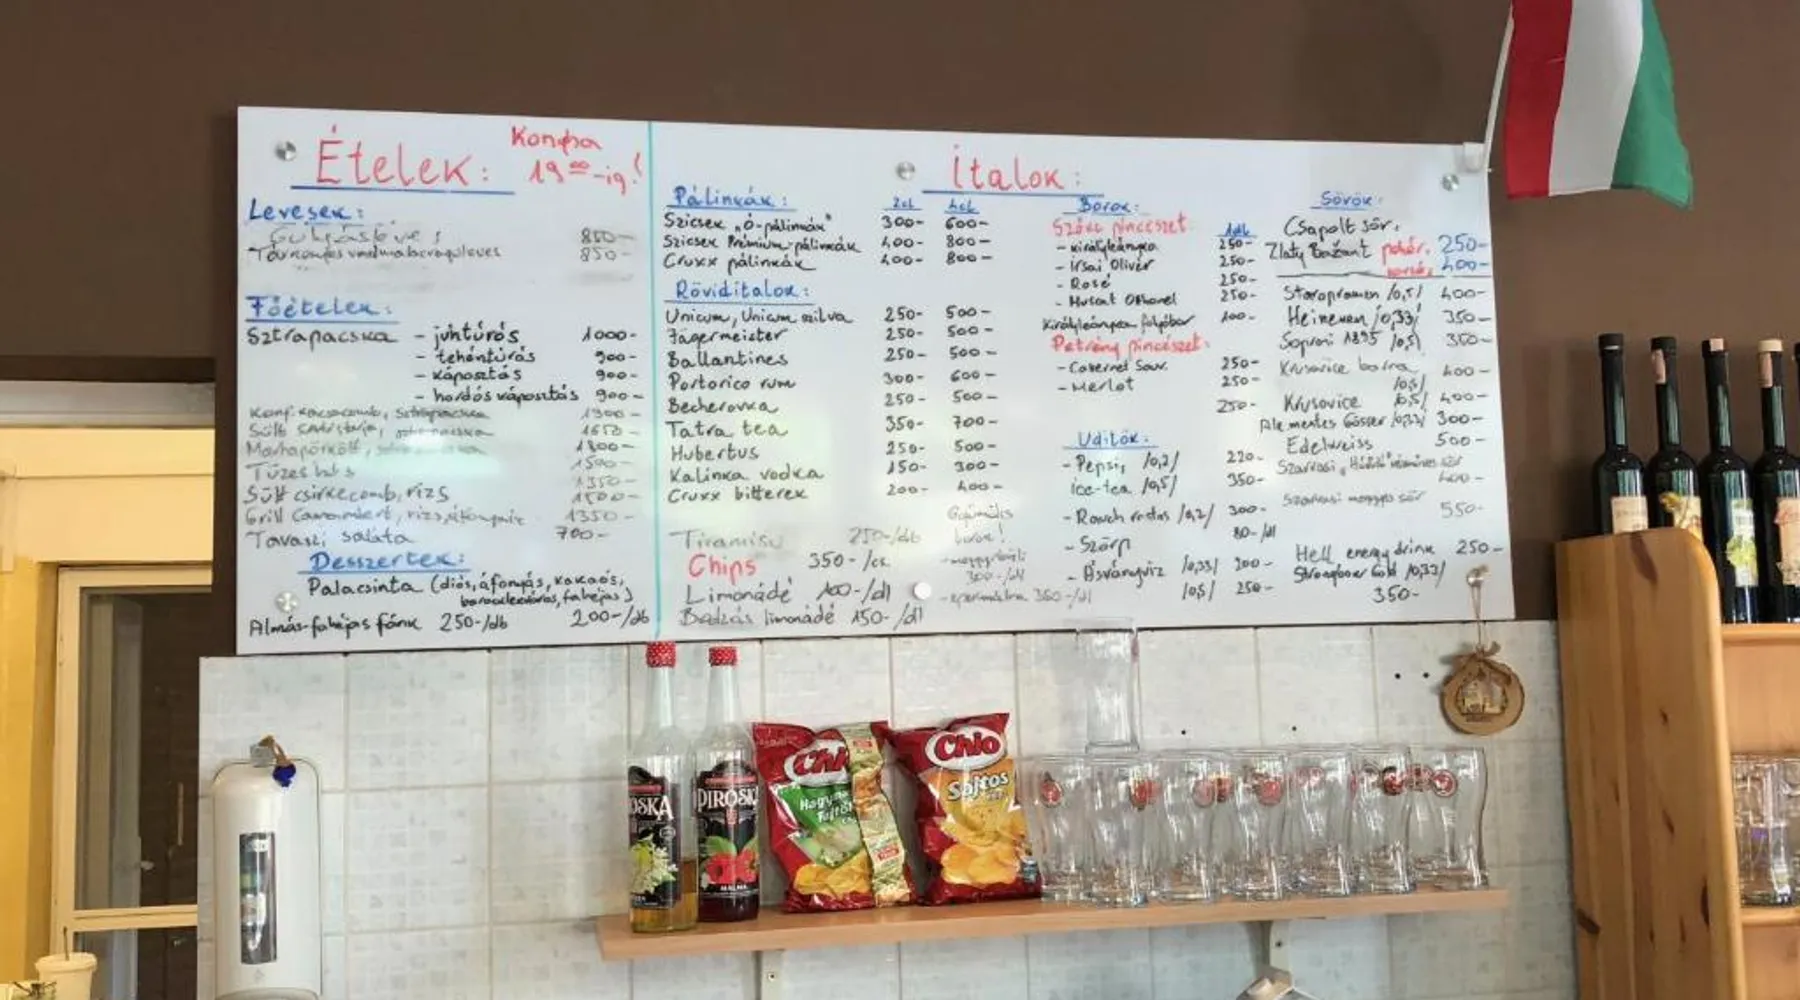 Ételek:
Konyha
19⁰⁰-ig!
Levesek:
Gulyásleves 850-
Tárkonyos vadmalacraguleves 850-
Főételek:
Sztrapacska - juhtúrós 1000-
- tehéntúrós 900-
- káposztás 900-
- hordós káposztás 900-
Konf. kacsacomb, sztrapacska 1900-
Sült 1650-
Marhapörkölt, 1800-
Tüzes 1500-
1350-
Sült csirkecomb, rizs 1500-
Grill Camambert, rizs, 1350-
Tavaszi saláta 700-
Desszertek:
Palacsinta (diós, áfonyás, kakaós,
fahéjas)
200-/db
Almás-fahéjas fánk 250-/db
Italok:
Pálinkák: 2cl 4cl
Szicsek „ó-pálinkák" 300- 600-
Szicsek Prémium-pálinkák 400- 800-
Cruxx pálinkák 400- 800-
Röviditalok:
Unicum, Unicum szilva 250- 500-
Jägermeister 250- 500-
Ballantines 250- 500-
Portorico rum 300- 600-
Becherovka 250- 500-
Tatra tea 350- 700-
Hubertus 250- 500-
Kalinka vodka 150- 300-
Cruxx bitterek 200- 400-
Tiramisu 250-/db
Chips 350-/cs.
Limonádé 100-/dl
Bodzás limonádé 150-/dl
Gyümölcs
borok!
- meggy
300-/dl
350-/dl
Borok: 1dl
Szőke pincészet:
- Királyleányka 250-
- Irsai Olivér 250-
- Rosé 250-
- Muscat Ottonel 250-
Királyleányka folyóbor 100-
Petrény pincészet:
- Cabernet Sauv. 250-
- Merlot 250-
250-
Üditők:
- Pepsi, /0,2/ 220-
ice-tea /0,5/ 350-
- Rauch rostos /0,2/ 300-
- Szörp 80-/dl
- Ásványvíz /0,33/ 200-
/0,5/ 250-
Sörök:
Csapolt sör:
Zlaty Bažant pohár: 250-
korsó: 400-
Staropramen /0,5/ 400-
Heineken /0,33/ 350-
Soproni 1895 /0,5/ 350-
Krusovice barna 400-
/0,5/
Krusovice /0,5/ 400-
Alk. mentes Gösser /0,33/ 300-
Edelweiss 500-
Szarvasi
400-
Szarvasi meggyes sör
550-
Hell energy drink 250-
Strongbow Gold /0,33/
350-
OSKA
PIROSKA
MÁLNA
Chio
Chio
Sajtos